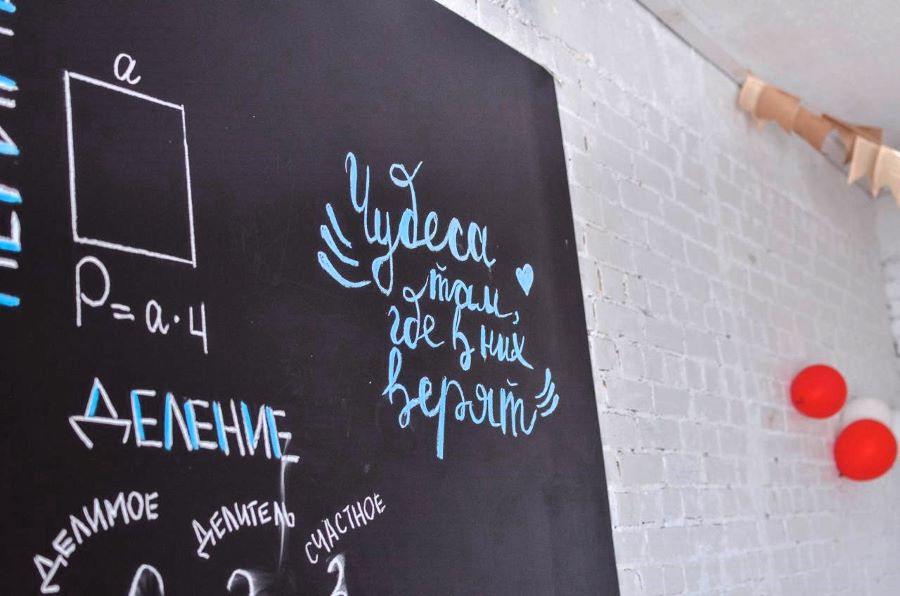 a
P=a·4
Чудеса
там,
где в них
верят
ДЕЛЕНИЕ
ДЕЛИМОЕ
ДЕЛИТЕЛЬ
СЧАСТНОЕ